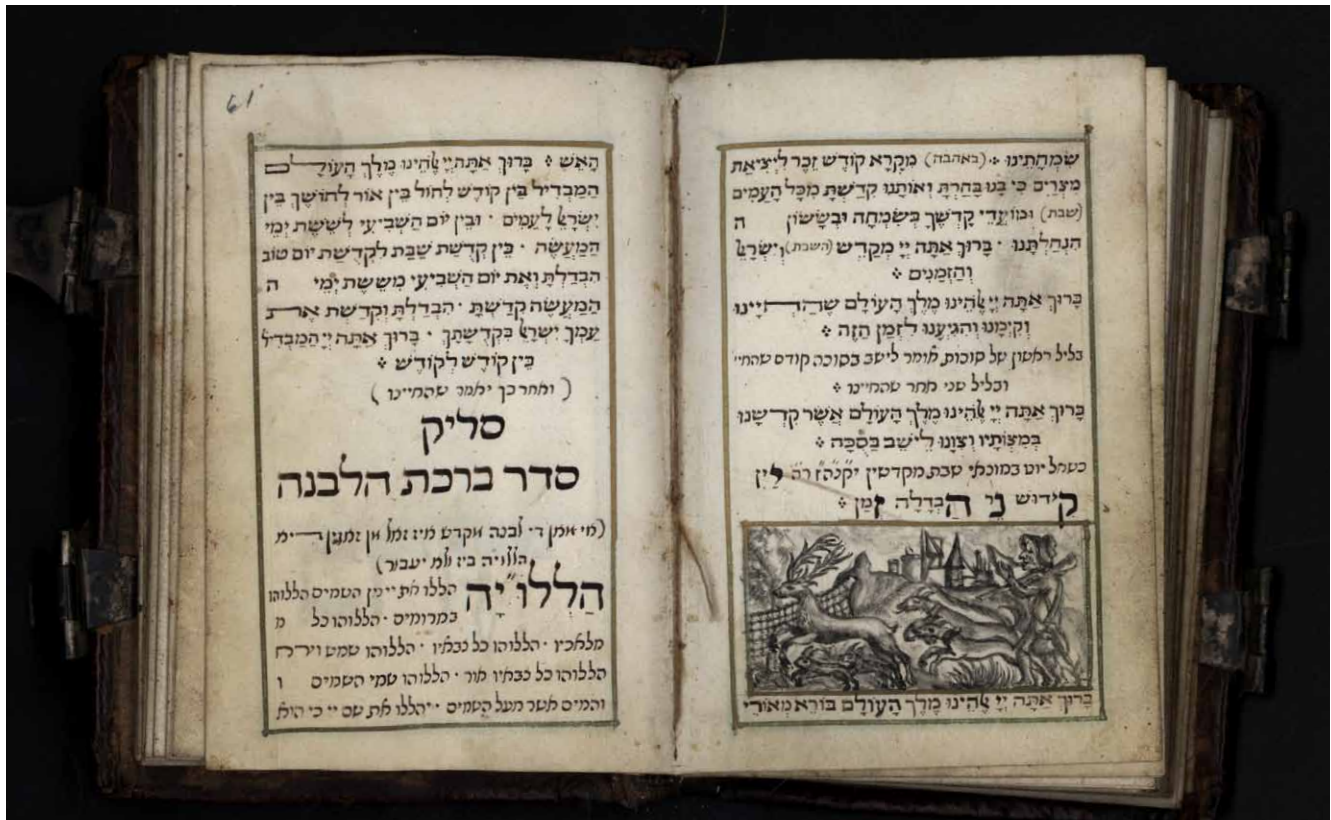 שִׂמְחָתֵינוּ ׃ (באהבה) מִקְרָא קוֹדֶשׁ זֵכֶר לִיצִיאַת
מִצְרַיִם כִּי בָנוּ בָחַרְתָּ וְאוֹתָנוּ קִדַּשְׁתָּ מִכָּל הָעַמִּים
(שבת) וּמוֹעֲדֵי קָדְשֶׁךָ בְּשִׂמְחָה וּבְשָׂשׂוֹן ה
הִנְחַלְתָּנוּ ׳ בָּרוּךְ אַתָּה יְיָ מְקַדֵּשׁ (השבת) וְיִשְׂרָאֵל
וְהַזְּמַנִּים ׃
בָּרוּךְ אַתָּה יְיָ אֱלֹהֵינוּ מֶלֶךְ הָעוֹלָם שֶׁהֶחֱיָינוּ
וְקִיְּמָנוּ וְהִגִּיעָנוּ לִזְמַן הַזֶּה ׃
בליל ראשון של סוכות אומר לישב בסוכה קודם שהחיי
ובליל שני אחר שהחיינו ׃
בָּרוּךְ אַתָּה יְיָ אֱלֹהֵינוּ מֶלֶךְ הָעוֹלָם אֲשֶׁר קִדְּשָׁנוּ
בְּמִצְוֹתָיו וְצִוָּנוּ לֵישֵׁב בַּסֻּכָּה ׃
כשחל יוט במוצאי שבת מקדשין יקנה״ז ר״ה יַיִן
קידוש נֵר הַבְדָּלָה זְמַן ׃
בָּרוּךְ אַתָּה יְיָ אֱלֹהֵינוּ מֶלֶךְ הָעוֹלָם בּוֹרֵא מְאוֹרֵי
61
הָאֵשׁ ׃ בָּרוּךְ אַתָּה יְיָ אֱלֹהֵינוּ מֶלֶךְ הָעוֹלָם
הַמַּבְדִּיל בֵּין קוֹדֶשׁ לְחוֹל בֵּין אוֹר לְחוֹשֶׁךְ בֵּין
יִשְׂרָאֵל לָעַמִּים ׳ וּבֵין יוֹם הַשְּׁבִיעִי לְשֵׁשֶׁת יְמֵי
הַמַּעֲשֶׂה ׳ בֵּין קְדֻשַּׁת שַׁבָּת לִקְדֻשַּׁת יוֹם טוֹב
הִבְדַּלְתָּ וְאֶת יוֹם הַשְּׁבִיעִי מִשֵּׁשֶׁת יְמֵי ה
הַמַּעֲשֶׂה קִדַּשְׁתָּ ׳ הִבְדַּלְתָּ וְקִדַּשְׁתָּ אֶת
עַמְּךָ יִשְׂרָאֵל בִּקְדֻשָּׁתֶךָ ׳ בָּרוּךְ אַתָּה יְיָ הַמַּבְדִּיל
בֵּין קוֹדֶשׁ לְקוֹדֶשׁ ׃
(ואחר כך יאמר שהחיינו)
סליק
סדר ברכת הלבנה
(מי אמן די לבנה מקדש
הַלְלוּ״יָהּ הללו את יי מן השמים הללוהו
במרומים ׳ הללוהו כל מ
מלאכיו ׳ הללוהו כל צבאיו ׳ הללוהו שמש וירח
הללוהו כל כוכבי אור ׳ הללוהו שמי השמים ו
והמים אשר מעל השמים ׳ יהללו את שם יי כי הוא